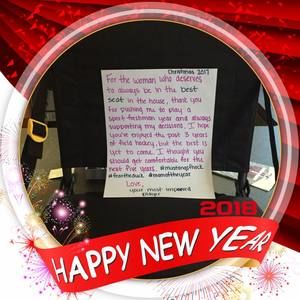 Christmas 2017
For the woman who deserves
to always be in the best
seat in the house, thank you
for pushing me to play a
sport freshman year and always
supporting my decisions. I hope
you've enjoyed the past 3 years
of field hockey, but the best is
yet to come. I thought you
should get comfortable for the
next five years.
#feartheduck #momoftheyear
Love,
your most improved
player
2018
HAPPY NEW YEAR